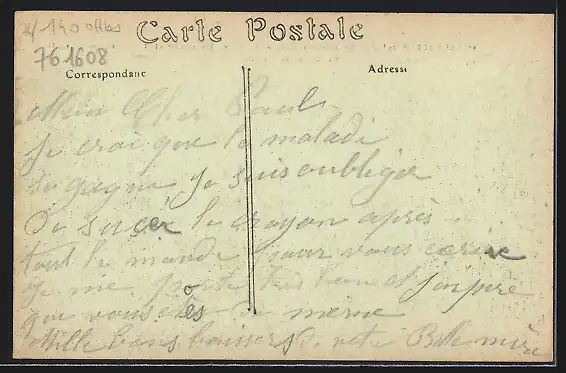 Carte Postale
761608
Correspondanc
Adresse
Mon Cher Paul
Je crai que la maladi
du gagne je suis oublige
De sucér le crayon après
tout le monde pour vous ecrire
je me porte très bon et j'espere
que vous etes de meme
Mille bons baissers de votre Belle mère